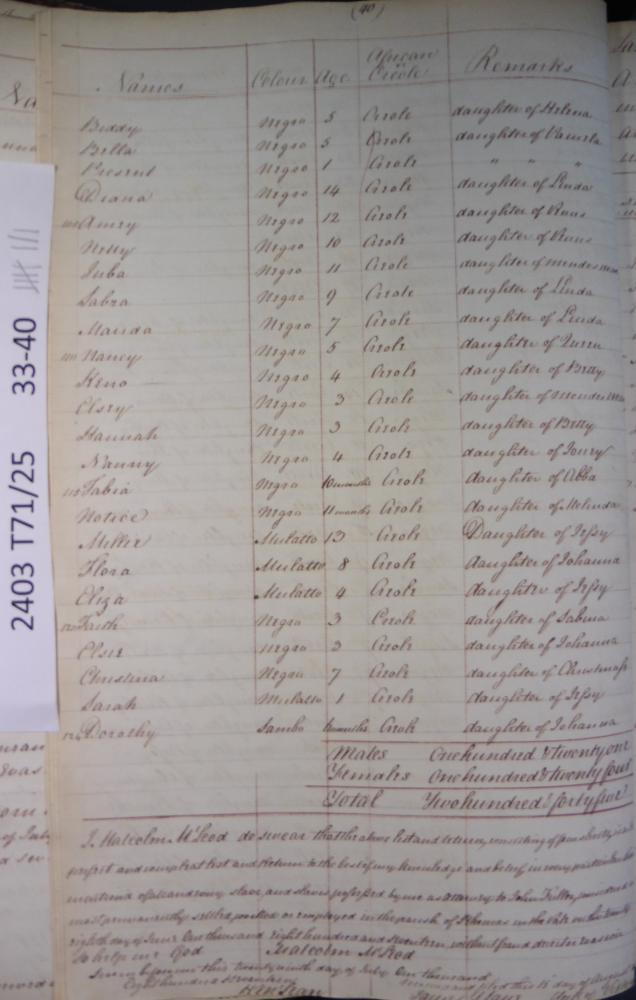 (40)
Names Colour Age African or Creole Remarks
Biddy Negro 5 Creole daughter of Helena
Bella Negro 5 Creole daughter of Pamela
Present Negro 1 Creole " " "
Diana Negro 14 Creole daughter of Linda
Amey Negro 12 Creole daughter of Venus
Nelly Negro 10 Creole daughter of Venus
Juba Negro 11 Creole daughter of
Sabra Negro 9 Creole daughter of Linda
Manda Negro 7 Creole daughter of Linda
Nancy Negro 5 Creole daughter of
Keno Negro 4 Creole daughter of Betty
Elsey Negro 3 Creole daughter of
Hannah Negro 3 Creole daughter of Betty
Nanny Negro 4 Creole daughter of
Tabia Negro 10 months Creole daughter of Abba
Notice Negro 11 months Creole daughter of Melinda
Millie Mulatto 13 Creole Daughter of Jessy
Flora Mulatto 8 Creole daughter of Johanna
Eliza Mulatto 4 Creole daughter of Jessy
Faith Negro 3 Creole daughter of Sabina
Elsie Negro 3 Creole daughter of Johanna
Christina Negro 7 Creole daughter of Christmass
Sarah Mulatto 1 Creole daughter of Jessy
Dorothy Sambo months Creole daughter of Johanna
Males One hundred & twenty one
Females One hundred & twenty four
Total Two hundred & forty five
I Malcolm McLeod do swear that the above list and return, consisting of
perfect and compleat list and return to the best of my knowledge and belief in every particular
of all and every slave and slaves possessed by me as attorney to John Fuller
most permanently settled worked or employed in the parish of St Thomas in the Vale on the twenty
eighth day of June One thousand eight hundred and seventeen, without fraud deceit or evasion
So help me God Malcolm McLeod
Sworn before me this twenty ninth day of July One thousand
Eight hundred & seventeen
2403 T71/25 33-40